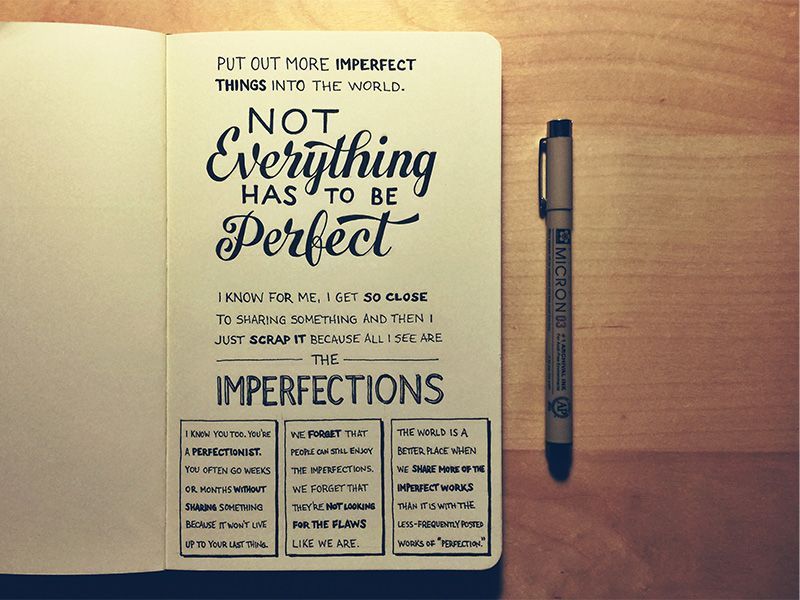 PUT OUT MORE IMPERFECT
THINGS INTO THE WORLD.
NOT
Everything
HAS TO BE
Perfect
I KNOW FOR ME, I GET SO CLOSE
TO SHARING SOMETHING AND THEN I
JUST SCRAP IT BECAUSE ALL I SEE ARE
THE
IMPERFECTIONS
I KNOW YOU TOO. YOU'RE
A PERFECTIONIST.
YOU OFTEN GO WEEKS
OR MONTHS WITHOUT
SHARING SOMETHING
BECAUSE IT WON'T LIVE
UP TO YOUR LAST THING.
WE FORGET THAT
PEOPLE CAN STILL ENJOY
THE IMPERFECTIONS.
WE FORGET THAT
THEY'RE NOT LOOKING
FOR THE FLAWS
LIKE WE ARE.
THE WORLD IS A
BETTER PLACE WHEN
WE SHARE MORE OF THE
IMPERFECT WORKS
THAN IT IS WITH THE
LESS-FREQUENTLY POSTED
WORKS OF "PERFECTION."
MICRON 03
#1 ARCHIVAL INK
For Acid Free Environments
AP